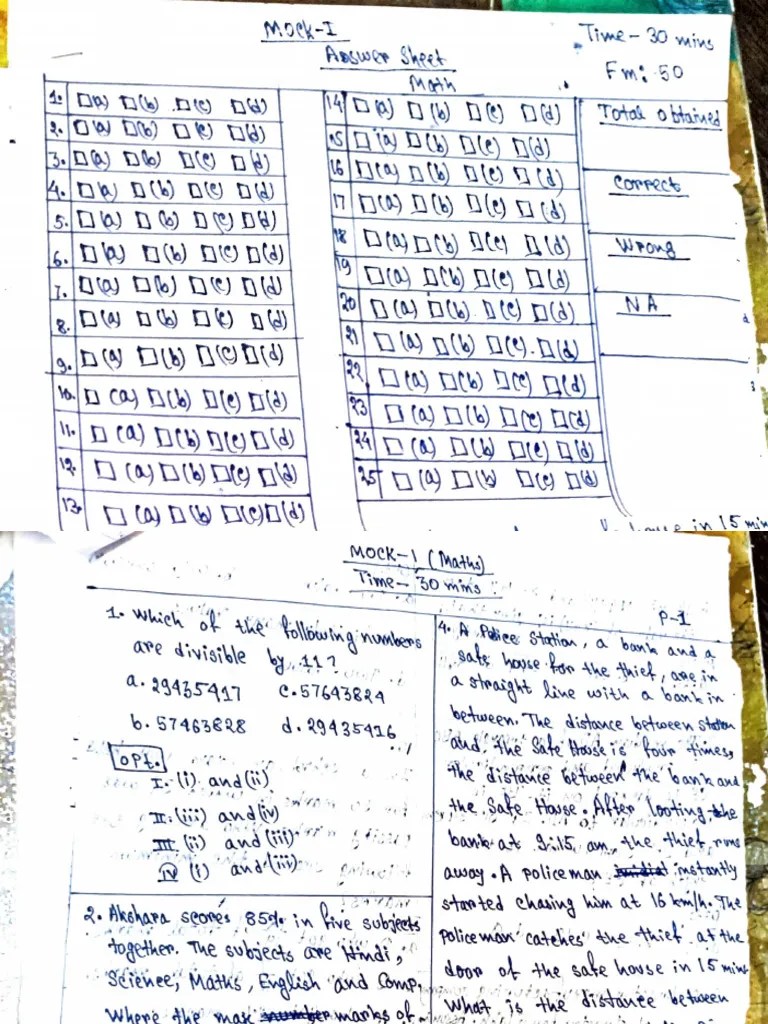 Mock-I
Answer Sheet
Math
Time - 30 mins
Fm: 50
1. (a) (b) (c) (d)
2. (a) (b) (c) (d)
3. (a) (b) (c) (d)
4. (a) (b) (c) (d)
5. (a) (b) (c) (d)
6. (a) (b) (c) (d)
7. (a) (b) (c) (d)
8. (a) (b) (c) (d)
9. (a) (b) (c) (d)
10. (a) (b) (c) (d)
11. (a) (b) (c) (d)
12. (a) (b) (c) (d)
13. (a) (b) (c) (d)
14 (a) (b) (c) (d)
15 (a) (b) (c) (d)
16 (a) (b) (c) (d)
17 (a) (b) (c) (d)
18 (a) (b) (c) (d)
19 (a) (b) (c) (d)
20 (a) (b) (c) (d)
21 (a) (b) (c) (d)
22 (a) (b) (c) (d)
23 (a) (b) (c) (d)
24 (a) (b) (c) (d)
25 (a) (b) (c) (d)
Total obtained
Correct
Wrong
NA
house in 15 min
Mock-1 (Maths)
Time - 30 mins
P-1
1. Which of the following numbers
are divisible by 11?
a. 29435417 c. 57643824
b. 57463828 d. 29435416
opt.
I. (i) and (ii)
II. (iii) and (iv)
III (ii) and (iii)
IV (i) and (iii)
2. Akshara scores 85% in five subjects
together. The subjects are Hindi,
Science, Maths, English and Comp.
Where the max marks of
4. A Police station, a bank and a
safe house for the thief, are in
a straight line with a bank in
between. The distance between station
and the Safe House is four times
the distance between the bank and
the Safe House. After looting the
bank at 9:15 am, the thief runs
away. A policeman instantly
started chasing him at 16 km/h. The
Policeman catches the thief at the
door of the safe house in 15 mins
What is the distance between